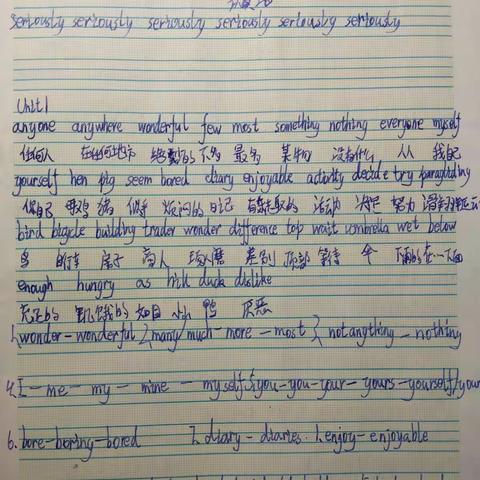 认真地
seriously seriously seriously seriously seriously seriously
Unit1
anyone anywhere wonderful few most something nothing everyone myself
任何人 在任何地方 绝妙的 不多 最多 某物 没有什么 人人 我自己
yourself hen pig seem bored diary enjoyable activity decide try paragliding
你自己 母鸡 猪 似乎 烦闷的 日记 有乐趣的 活动 决定 努力
bird bicycle building trader wonder difference top wait umbrella wet below
鸟 自行车 房子 商人 差别 顶部 等待 伞
enough hungry as hill duck dislike
充足的 饥饿的 如同 小山 鸭 厌恶
1.wonder-wonderful 2.many/much-more-most 3.not anything-nothing
4.I-me-my-mine-myself 5.you-you-your-yours-yourself/your
6.bore-boring-bored 7.diary-diaries. 1.enjoy-enjoyable